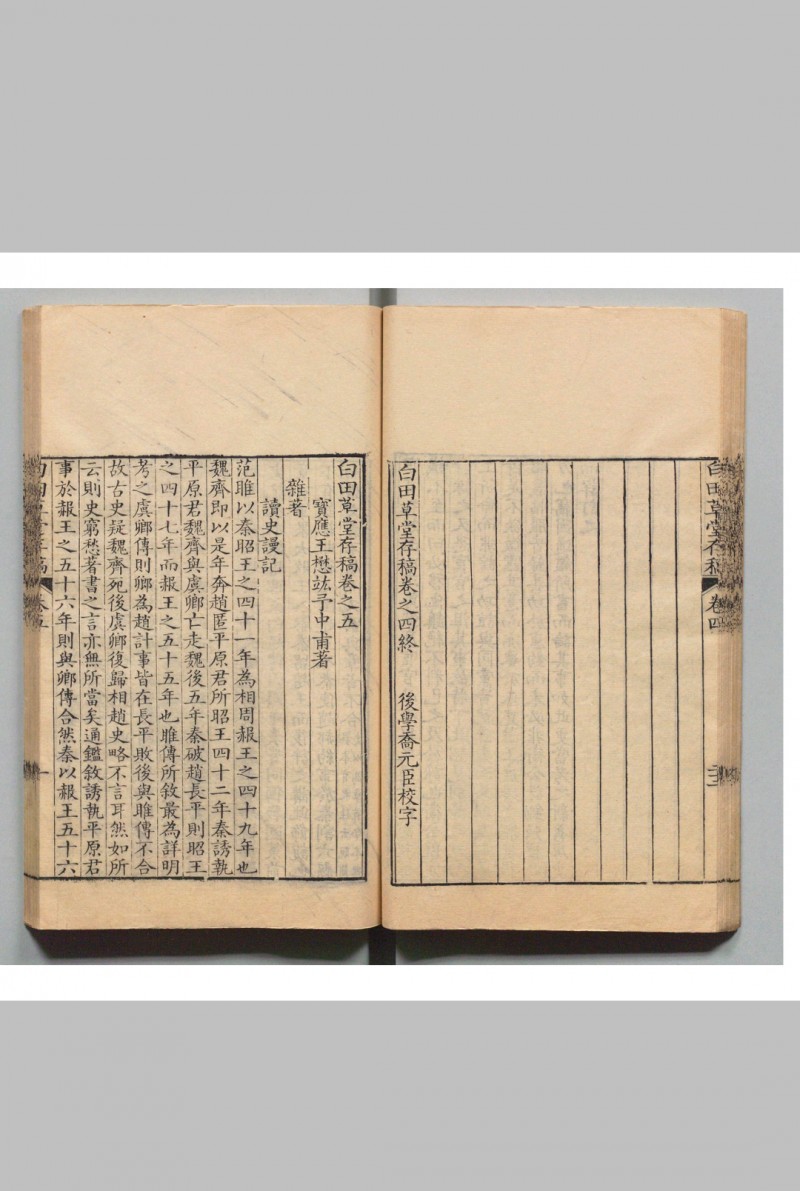 白田草堂存稿
卷四
白田草堂存稿卷之四終　後學喬元臣校字
白田草堂存稿卷之五
寶應王懋竑予中甫著
雜著
讀史謾記
范睢以秦昭王之四十一年為相周赧王之四十九年也
魏齊即以是年奔趙匿平原君所昭王四十二年秦誘執
平原君魏齊與虞卿亡走魏後五年秦破趙長平則昭王
之四十七年而赧王之五十五年也睢傳所敘最為詳明
考之虞卿傳則卿為趙計事皆在長平敗後與睢傳不合
故古史疑魏齊死後虞卿復歸相趙史略不言耳然如所
云則史窮愁著書之言亦無所當矣通鑑敘誘執平原君
事於赧王之五十六年則與卿傳合然秦以赧王五十六
卷五
一